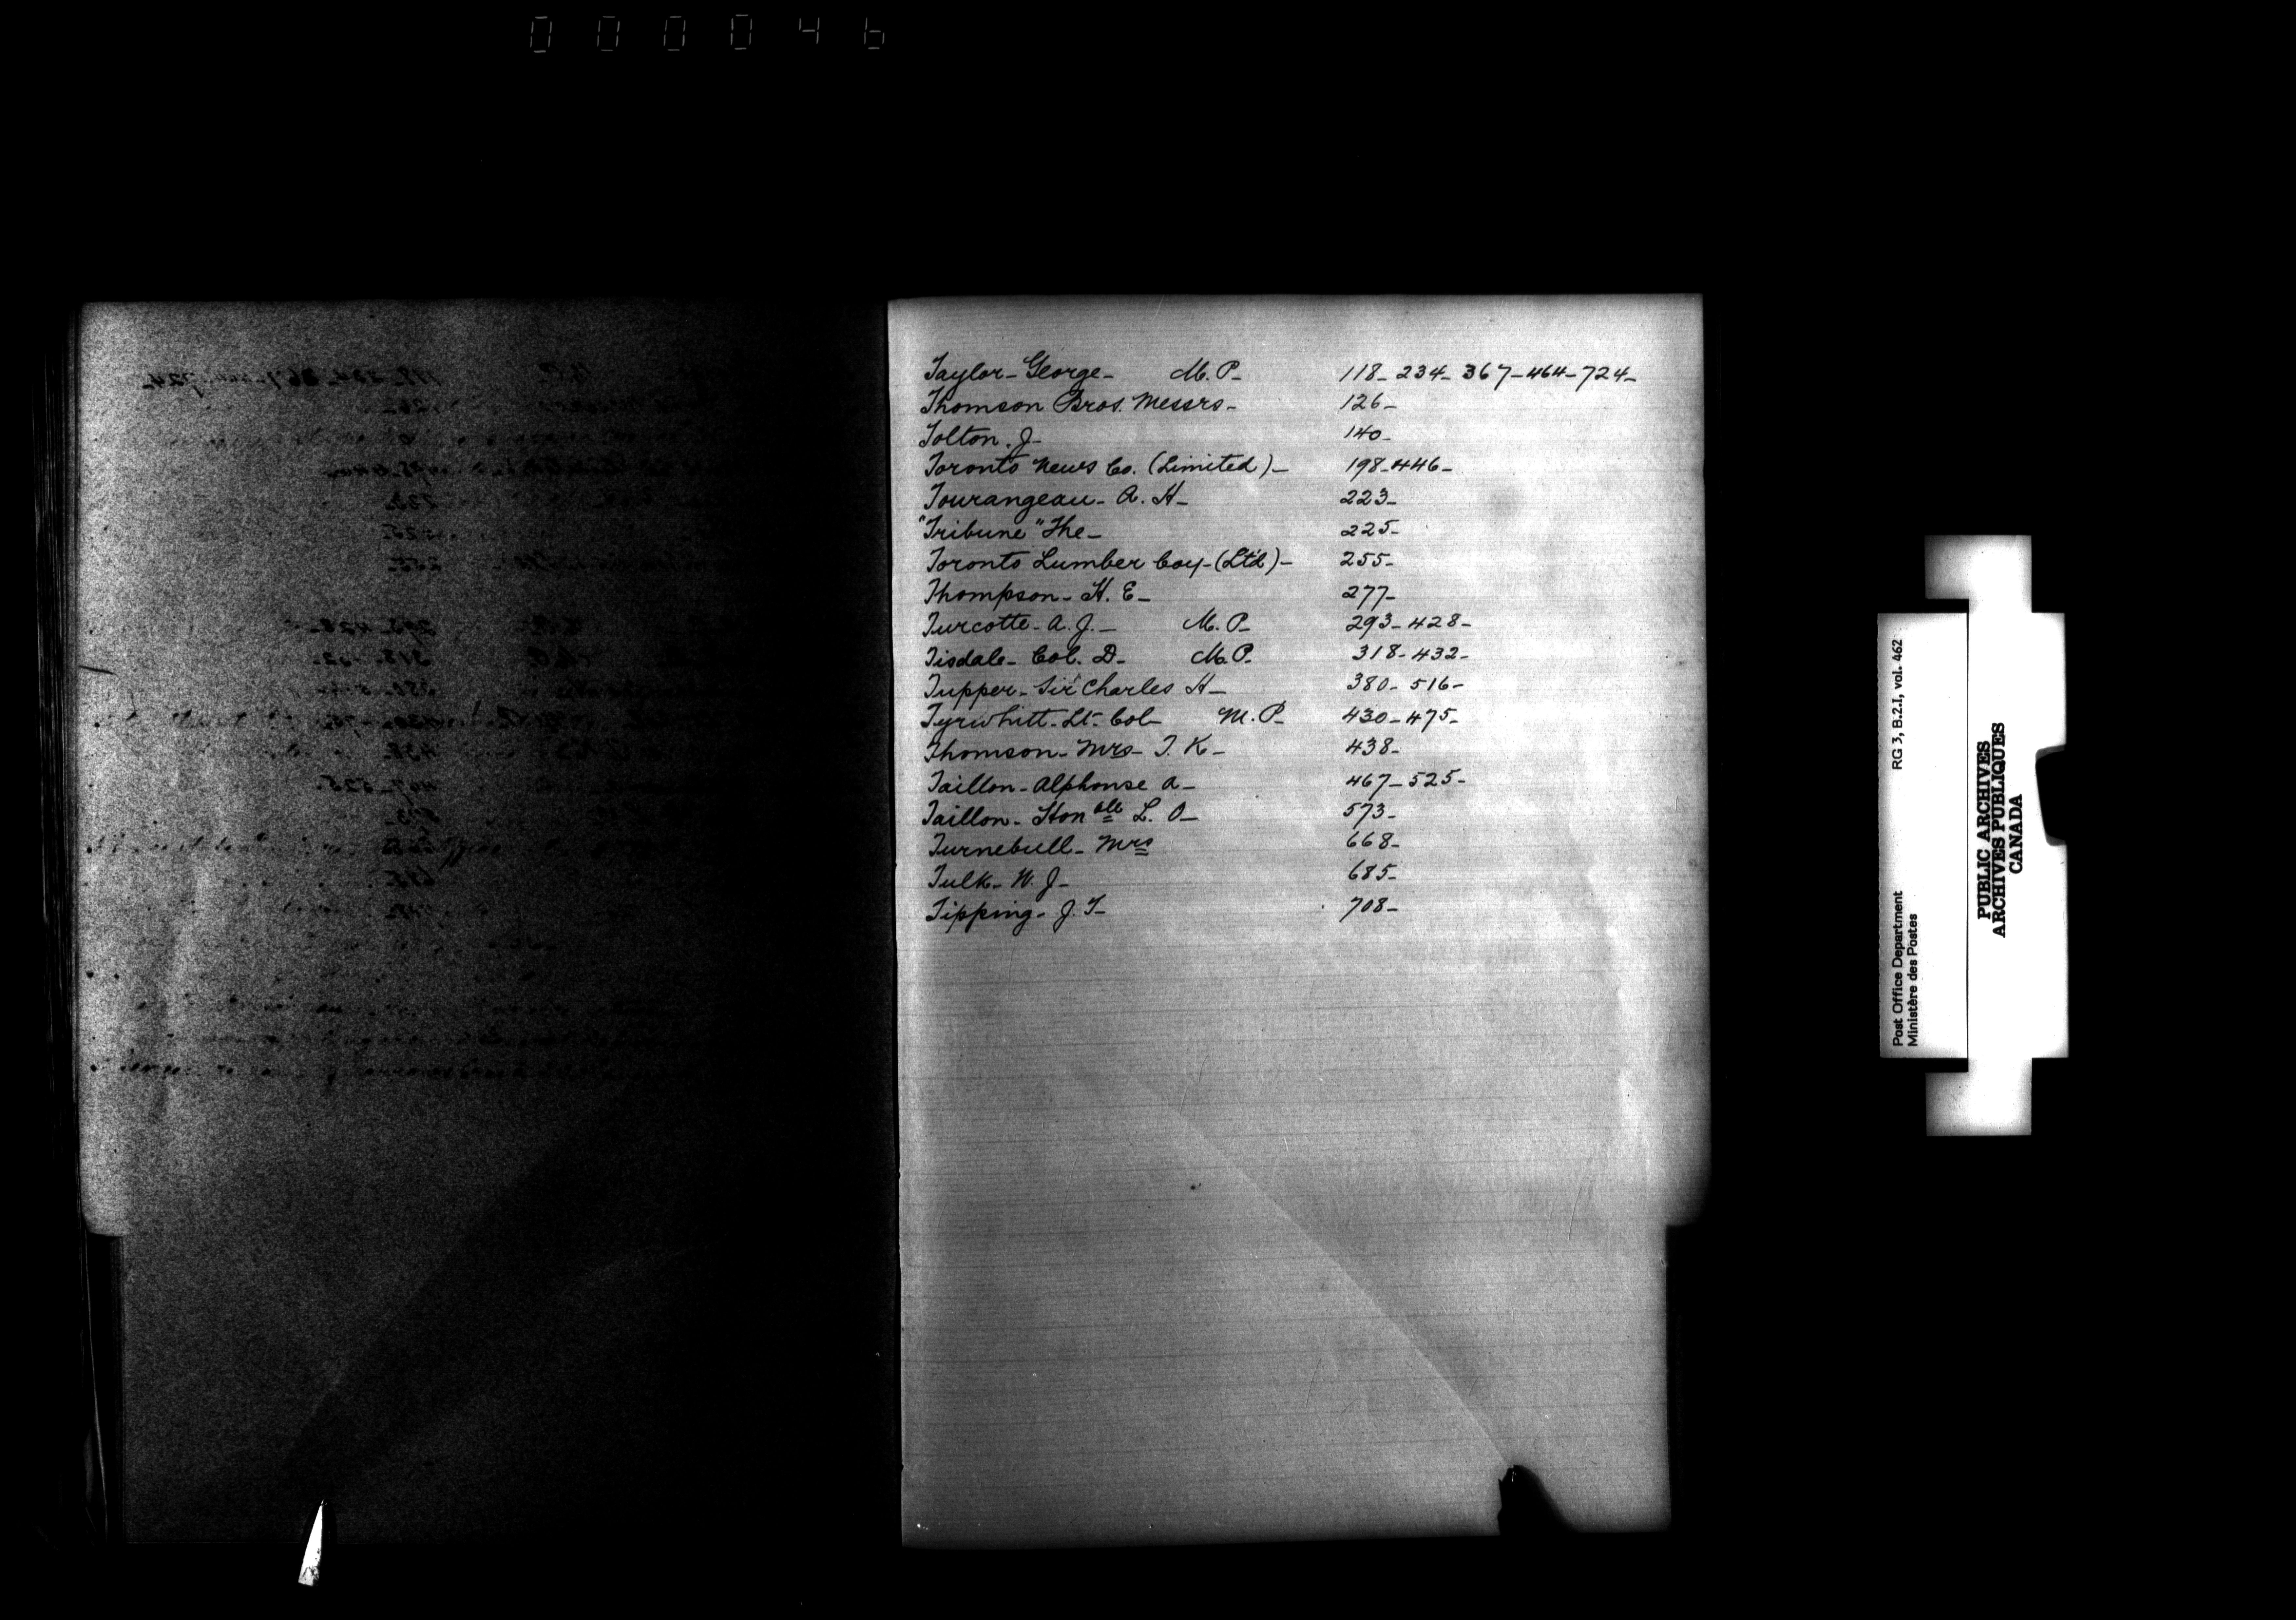 000046
Taylor - George - M.P. 118 - 234 - 367 - 464 - 724 -
Thomson Bros. Messrs - 126 -
Tolton. J - 140 -
Toronto News Co. (Limited) - 198 - 446 -
Tourangeau - A. H - 223 -
"Tribune" The - 225 -
Toronto Lumber Coy - (Ltd) - 255 -
Thompson - H. E - 277 -
Turcotte - A. J. - M.P. 293 - 428 -
Tisdale - Col. D - M.P. 318 - 432 -
Tupper - Sir Charles H - 380 - 516 -
Tyrwhitt - Lt - Col - M.P. 430 - 475 -
Thomson - Mrs - T. K - 438 -
Taillon - Alphonse A - 467 - 525 -
Taillon - Honble L. O - 573 -
Turnebull - Mrs 668 -
Tulk - W. J - 685 -
Tipping - J. T - 708 -
RG 3, B.2.I, vol. 462
Post Office Department
Ministère des Postes
PUBLIC ARCHIVES
ARCHIVES PUBLIQUES
CANADA